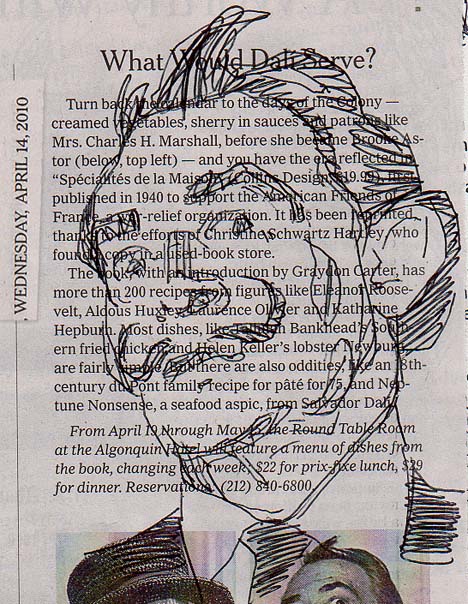 What Would Dali Serve?
WEDNESDAY, APRIL 14, 2010
Turn back the calendar to the days of the Colony —
creamed vegetables, sherry in sauces and patrons like
Mrs. Charles H. Marshall, before she became Brooke As-
tor (below, top left) — and you have the era reflected in
“Spécialités de la Maison” (Collins Design, $19.99), first
published in 1940 to support the American Friends of
France, a war-relief organization. It has been reprinted,
thanks to the efforts of Christine Schwartz Hartley, who
found a copy in a used-book store.
The book, with an introduction by Graydon Carter, has
more than 200 recipes from figures like Eleanor Roose-
velt, Aldous Huxley, Laurence Olivier and Katharine
Hepburn. Most dishes, like Tallulah Bankhead’s South-
ern fried chicken and Helen Keller’s lobster Newburg,
are fairly simple. But there are also oddities, like an 18th-
century du Pont family recipe for pâté for 75, and Nep-
tune Nonsense, a seafood aspic, from Salvador Dalí.
From April 19 through May the Round Table Room
at the Algonquin Hotel will feature a menu of dishes from
the book, changing each week; $22 for prix-fixe lunch, $29
for dinner. Reservations: (212) 840-6800.